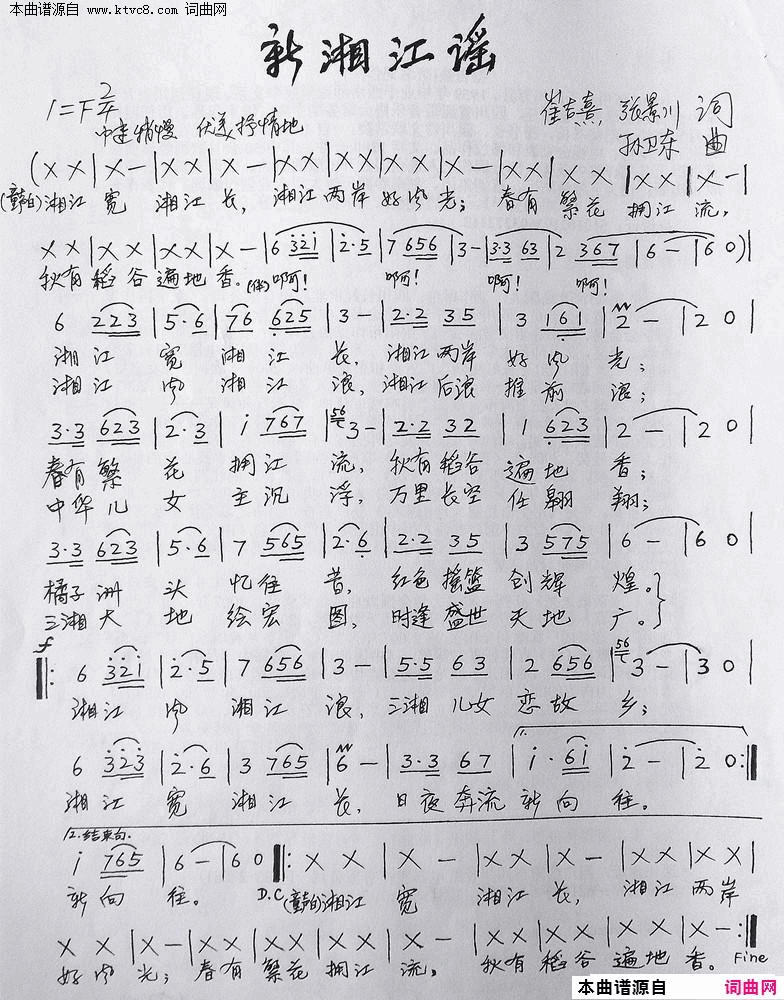 本曲谱源自 www.ktvc8.com 词曲网
新湘江谣
1=F 2/4
中速稍慢 优美抒情地
崔吉熹 张景川 词
孙卫东 曲
(X X | X - | X X | X - | X X | X X | X X | X - | X X | X X | X X | X - |
(童白)湘江 宽 湘江 长, 湘江 两岸 好风 光; 春有 繁花 拥江 流,
X X | X X | X X | X - | 6 321 | 2·5 | 7 656 | 3 - | 3·3 63 | 2 367 | 6 - | 6 0) |
秋有 稻谷 遍地 香。(伴)啊! 啊! 啊! 啊!
6 223 | 5·6 | 76 625 | 3 - | 2·2 35 | 3 161 | 2 - | 2 0 |
湘江 宽 湘江 长, 湘江两岸 好风 光;
湘江 风 湘江 浪, 湘江后浪 推前 浪;
3·3 623 | 2·3 | i 767 | 56 3 - | 2·2 32 | 1 623 | 2 - | 2 0 |
春有繁 花 拥江 流, 秋有稻谷 遍地 香;
中华儿 女 主沉 浮, 万里长空 任翱 翔;
3·3 623 | 5·6 | 7 565 | 2·6 | 2·2 35 | 3 575 | 6 - | 6 0 |
橘子洲 头 忆往 昔, 红色摇篮 创辉 煌。}
三湘大 地 绘宏 图, 时逢盛世 天地 广。}
f
6 321 | 2·5 | 7 656 | 3 - | 5·5 63 | 2 656 | 56 3 - | 3 0 |
湘江 风 湘江 浪, 三湘儿女 恋故 乡;
6 323 | 2·6 | 3 765 | 6 - | 3·3 67 | i·6i | 2 - | 2 0 :||
湘江 宽 湘江 长, 日夜奔流 新向 往。
2.结束句.
i 765 | 6 - | 6 0 ||: X X | X - | X X | X - | X X | X X |
新向 往。 D.C (童白)湘江 宽 湘江 长, 湘江 两岸
X X | X - | X X | X X | X X | X - | X X | X X | X X | X - :||
好风 光; 春有 繁花 拥江 流, 秋有 稻谷 遍地 香。 Fine
本曲谱源自 词曲网